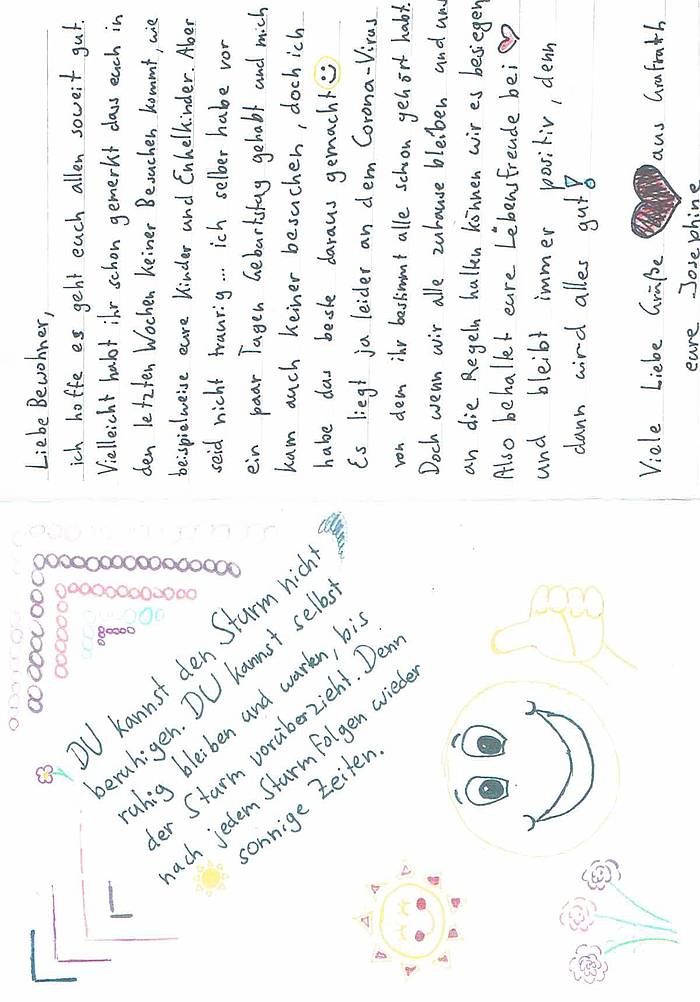 Liebe Bewohner,
ich hoffe es geht euch allen soweit gut.
Vielleicht habt ihr schon gemerkt dass euch in
den letzten Wochen keiner Besuchen kommt, wie
beispielweise eure Kinder und Enkelkinder. Aber
seid nicht traurig... ich selber habe vor
ein paar Tagen Geburtstag gehabt und mich
kam auch keiner besuchen, doch ich
habe das beste daraus gemacht
Es liegt ja leider an dem Corona-Virus
von dem ihr bestimmt alle schon gehört habt.
Doch wenn wir alle zuhause bleiben und uns
an die Regeln halten können wir es besiegen
Also behaltet eure Lebensfreude bei
und bleibt immer positiv, denn
dann wird alles gut!
Viele Liebe Grüße aus Grafrath
eure Josephine
DU kannst den Sturm nicht
beruhigen. DU kannst selbst
ruhig bleiben und warten, bis
der Sturm vorüberzieht. Denn
nach jedem Sturm folgen wieder
sonnige Zeiten.